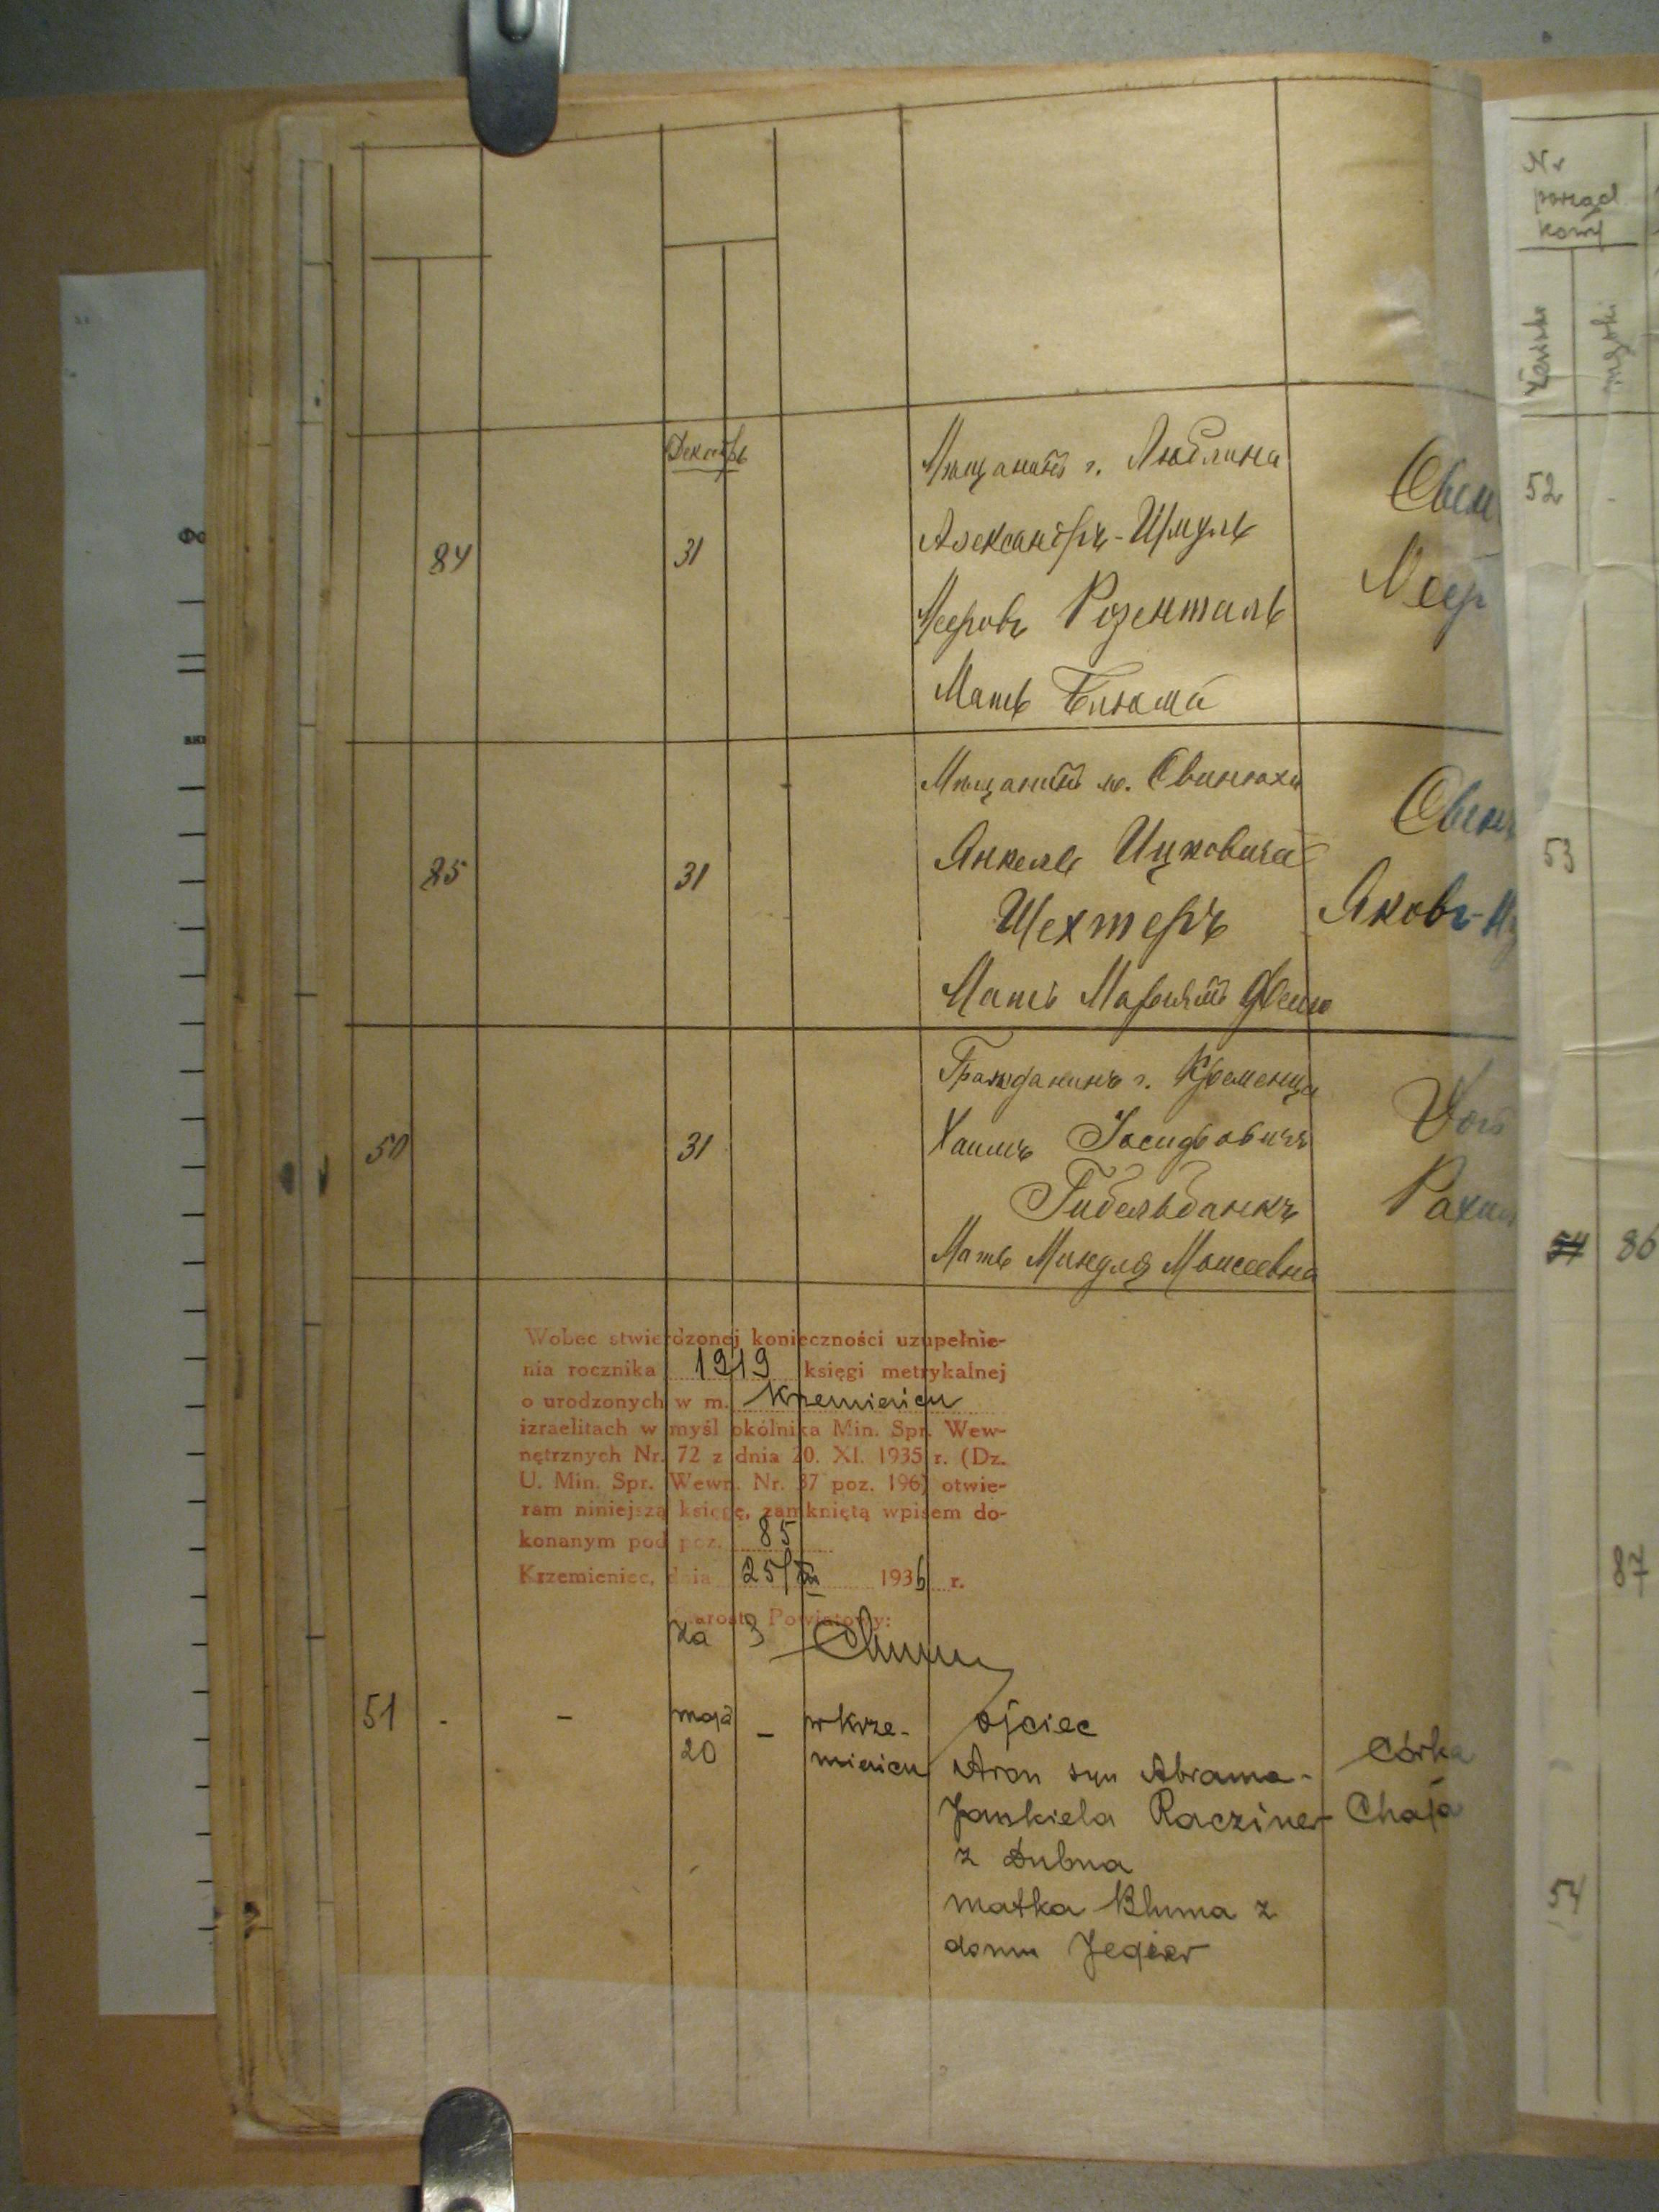 Декабрь
84
31
Мѣщанинъ г. Люблина
Александръ-Шмуль
Мееровъ Розенталь
Мать Блюма
Меер
85
31
Мѣщанинъ м. Свинюхи
Янкель Ицковичъ
Шехтеръ
Мать Марьямъ
Яковъ-
50
31
Гражданинъ г. Кременца
Хаимъ Іосифовичъ
Гибельбанкъ
Мать Миндля Моисеевна
Wobec stwierdzonej konieczności uzupełnie-
nia rocznika 1919 księgi metrykalnej
o urodzonych w m. Krzemieńcu
izraelitach w myśl okólnika Min. Spr. Wew-
nętrznych Nr. 72 z dnia 20. XI. 1935 r. (Dz.
U. Min. Spr. Wewn. Nr. 37 poz. 196) otwie-
ram niniejszą księgę, zamkniętą wpisem do-
konanym pod poz. 85
Krzemieniec, dnia 25/ 1936 r.
Starosta Powiatowy:
za
51 - - maja - w Krze- ojciec
20 mieńcu Aron syn Abrama-
Córka
Jankiela Racziner Chaja
z Dubna
matka Bluma z
domu Jegier
Nr
porząd
kowy
żeński
męski
52 -
53
54 86
87
54